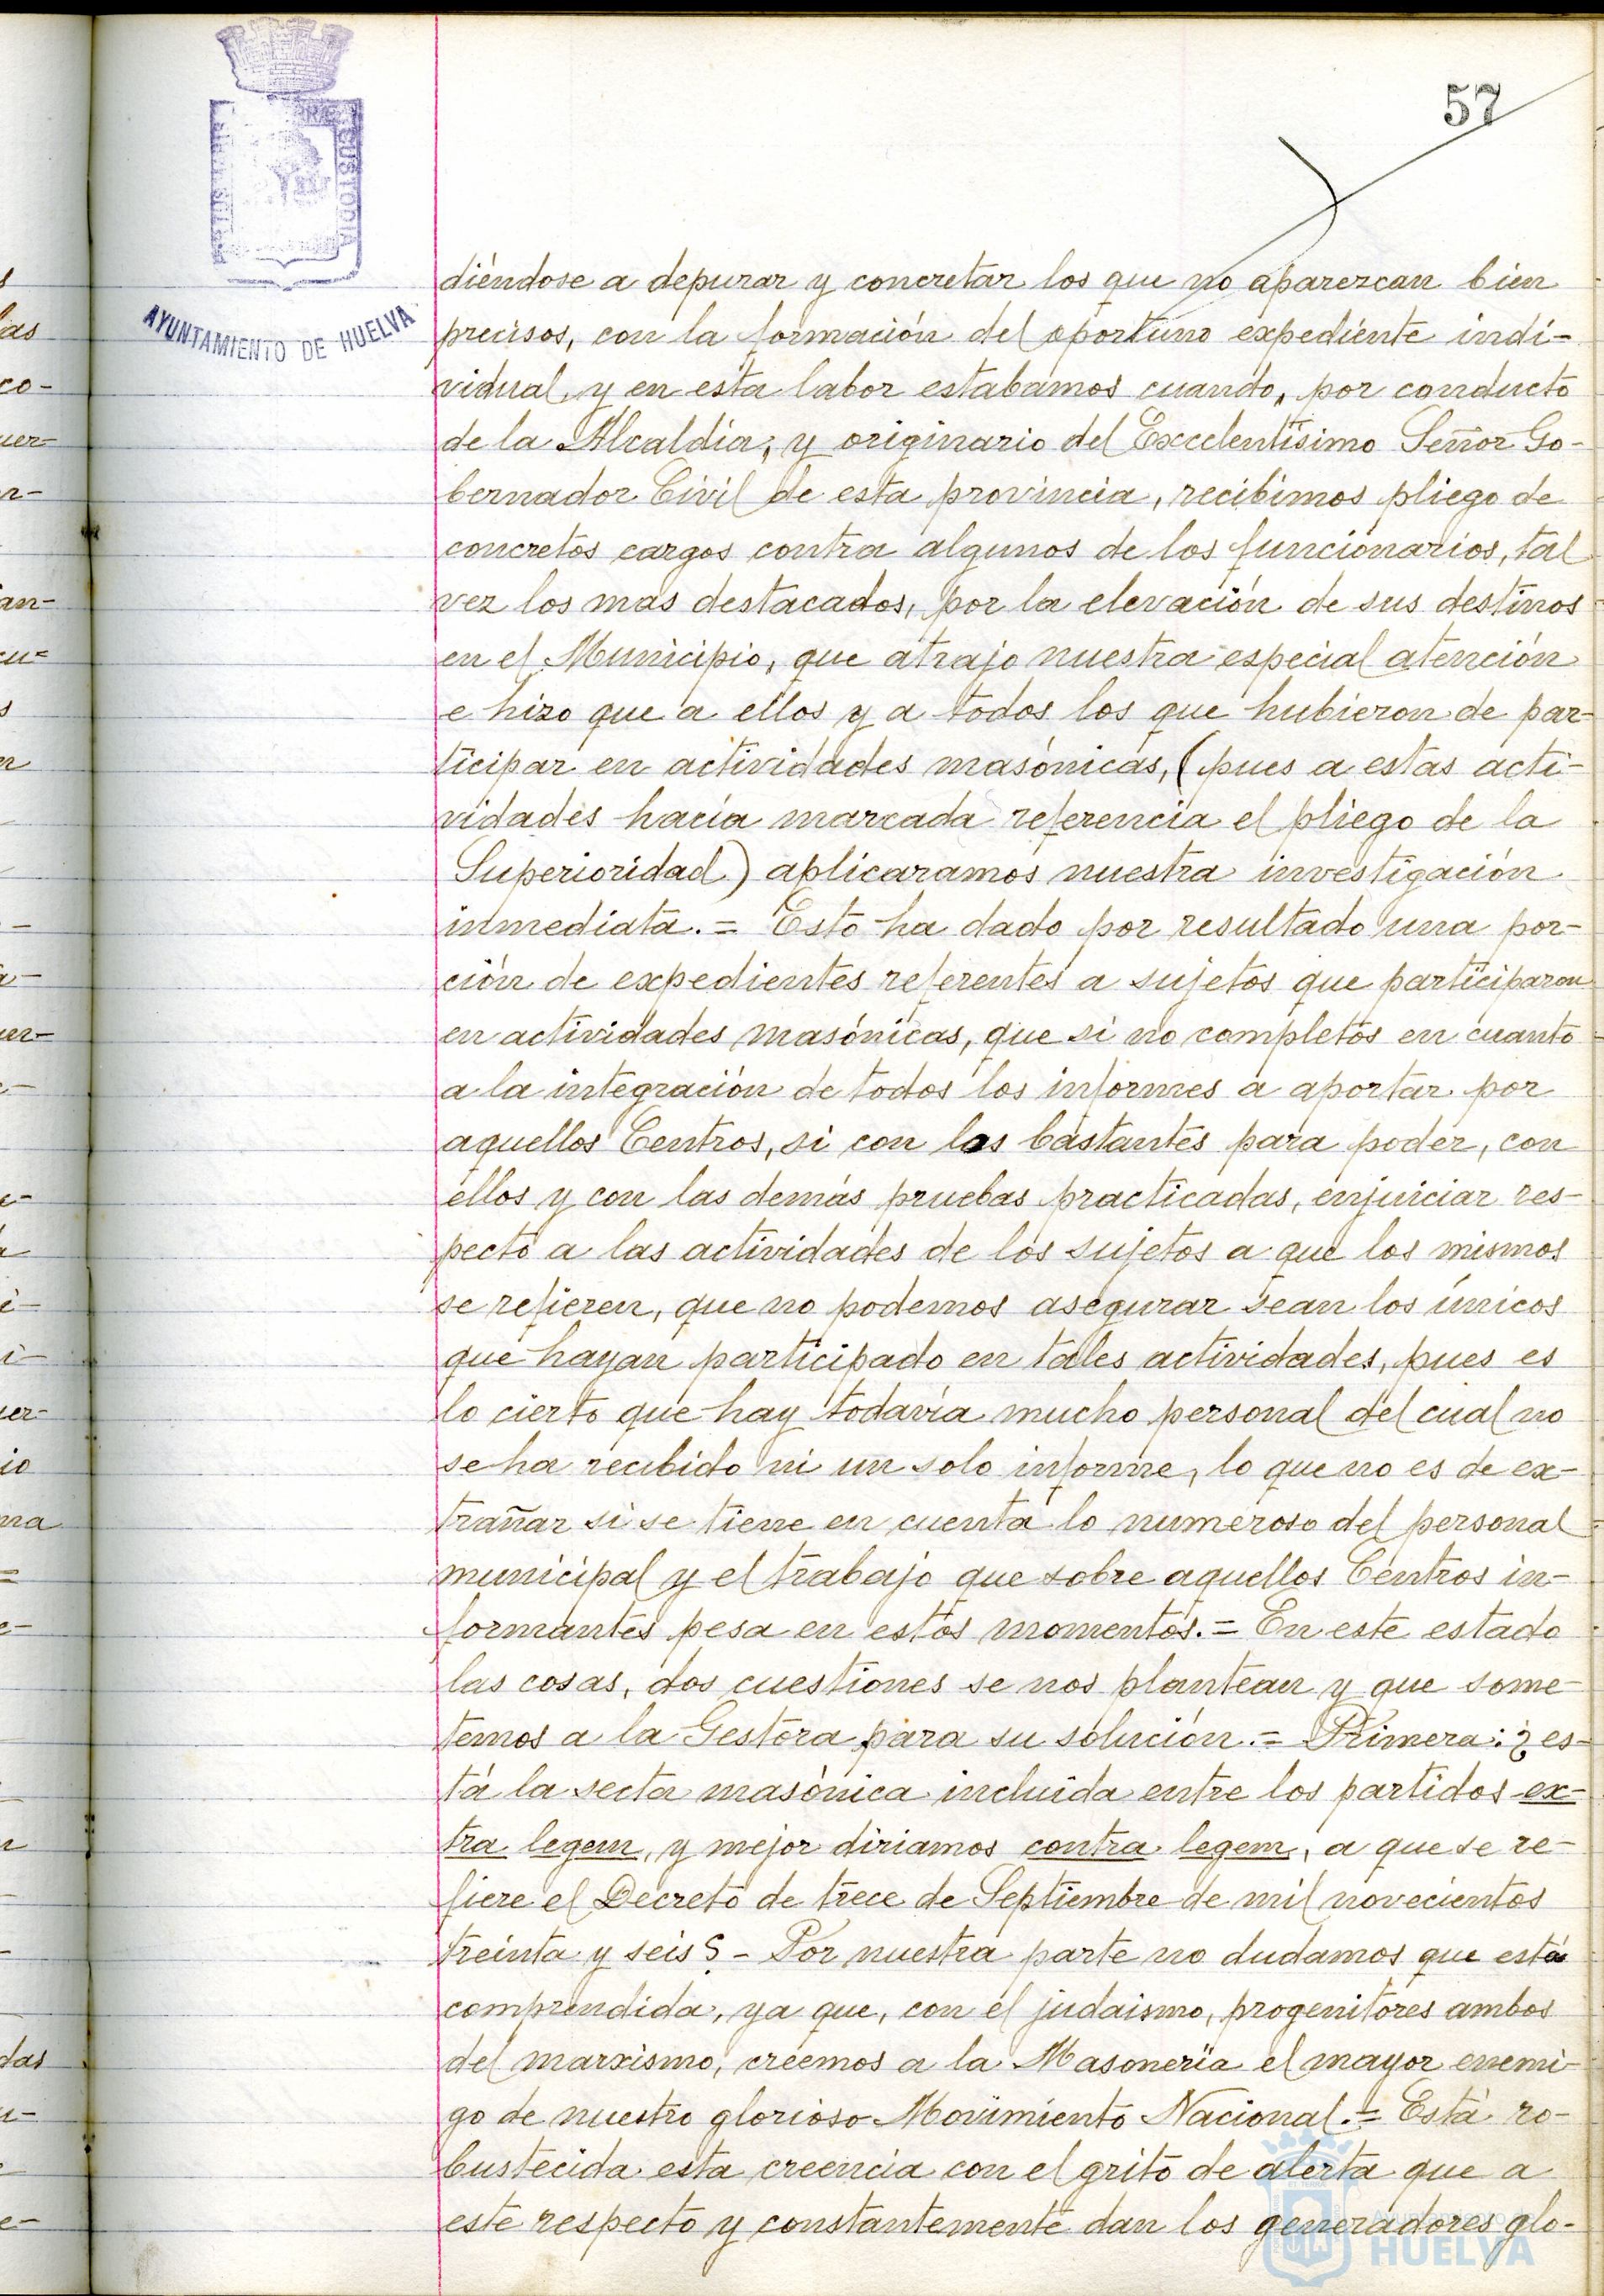 57
AYUNTAMIENTO DE HUELVA
CUSTODIA
diéndose a depurar y concretar los que no aparezcan bien
precisos, con la formación del oportuno expediente indi-
vidual, y en esta labor estabamos cuando, por conducto
de la Alcaldía, y originario del Excelentísimo Señor Go-
bernador Civil de esta provincia, recibimos pliego de
concretos cargos contra algunos de los funcionarios, tal
vez los mas destacados, por la elevación de sus destinos
en el Municipio, que atrajo nuestra especial atención
e hizo que a ellos y a todos los que hubieron de par-
ticipar en actividades masónicas, (pues a estas acti-
vidades hacía marcada referencia el pliego de la
Superioridad) aplicaramos nuestra investigación
inmediata.= Esto ha dado por resultado una por-
ción de expedientes referentes a sujetos que participaron
en actividades masónicas, que si no completos en cuanto
a la integración de todos los informes a aportar por
aquellos Centros, si con los bastantes para poder, con
ellos y con las demás pruebas practicadas, enjuiciar res-
pecto a las actividades de los sujetos a que los mismos
se refieren, que no podemos asegurar sean los únicos
que hayan participado en tales actividades, pues es
lo cierto que hay todavía mucho personal del cual no
se ha recibido ni un solo informe, lo que no es de ex-
trañar si se tiene en cuenta lo numeroso del personal
municipal y el trabajo que sobre aquellos Centros in-
formantes pesa en estos momentos.= En este estado
las cosas, dos cuestiones se nos plantean y que some-
temos a la Gestora para su solución.= Primera: ¿es-
tá la secta masónica incluída entre los partidos ex-
tra legem, y mejor diriamos contra legem, a que se re-
fiere el Decreto de trece de Septiembre de mil novecientos
treinta y seis? - Por nuestra parte no dudamos que está
comprendida, ya que, con el judaismo, progenitores ambos
del marxismo, creemos a la Masonería el mayor enemi-
go de nuestro glorioso Movimiento Nacional.= Está ro-
bustecida esta creencia con el grito de alerta que a
este respecto y constantemente dan los generadores glo-
HUELVA